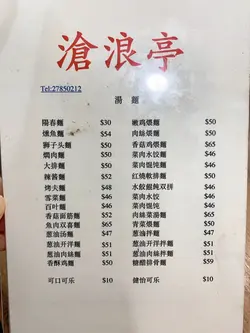 滄浪亭
Tel:27850212
湯 麵
陽春麵 $30 嫩鸡煨麵 $50
燻魚麵 $54 肉絲煨麵 $50
狮子头麵 $50 香菇鸡煨麵 $65
焗肉麵 $50 菜肉水饺麵 $46
大排麵 $50 菜肉馄饨麵 $46
辣酱麵 $52 红燒軟排麵 $50
烤夫麵 $48 水餃餛飩双拼 $46
雪菜麵 $46 菜肉水饺 $46
百叶麵 $46 菜肉馄饨 $46
香菇面筋麵 $52 肉絲菜湯麵 $65
魚肉双喜麵 $65 青菜煨麵 $50
葱油汤麵 $47 葱油拌麵 $47
葱油开洋麵 $51 葱油开洋拌麵 $51
葱油肉絲麵 $51 葱油肉絲拌麵 $51
香酥鸡麵 $50 糖醋排骨麵 $59
可口可乐 $10 健怡可乐 $10